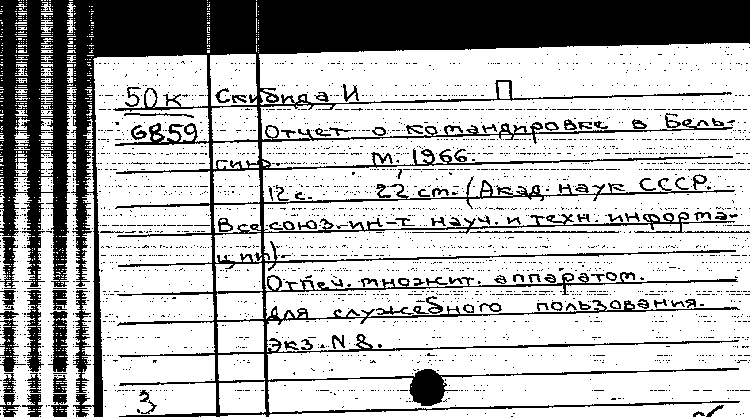 50к Скибида, И П
6859 Отчет о командировке в Бель-
гию. М. 1966.
12 с. 22 см. (Акад. наук СССР.
Всесоюз. ин-т науч. и техн. информа-
ции).
Отпеч. множит. аппаратом.
Для служебного пользования.
Экз. N 8.
3